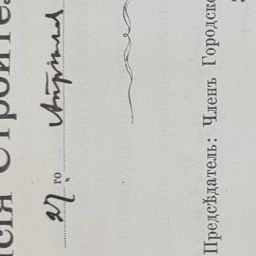 сія Строите
27 го Апрѣля
Предсѣдатель: Членъ Городско